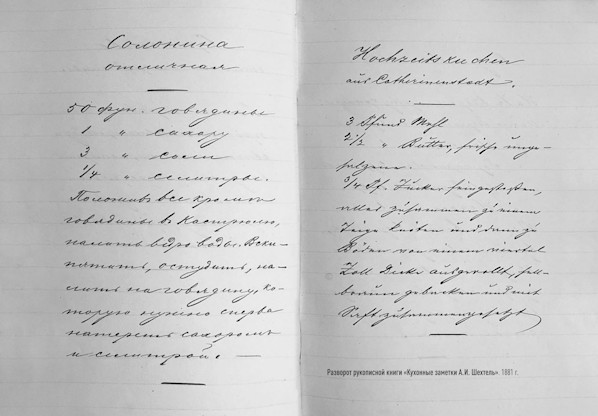 Солонина
отличная
50 фун. говядины
1 " сахару
3 " соли
1/4 " селитры.
Положить все кромѣ
говядины въ Кастрюлю,
налить ведро воды. Вски-
пятить, остудить, на-
лить на говядину, ко-
торую нужно сперва
натереть сахаромъ
и селитрой. —
Hochzeitskuchen
aus Catherinenstadt.
3 Pfund Mehl
2 1/2 " Butter, frische unge-
salzene.
3/4 Pf. Zucker feingestoßen,
alles zusammen zu einem
Teige kneten und dann zu
Böden von einem viertel
Zoll Dicke ausgerollt, hell-
braun gebacken und mit
Saft zusammengesetzt
Разворот рукописной книги «Кухонные заметки А.И. Шехтель». 1881 г.